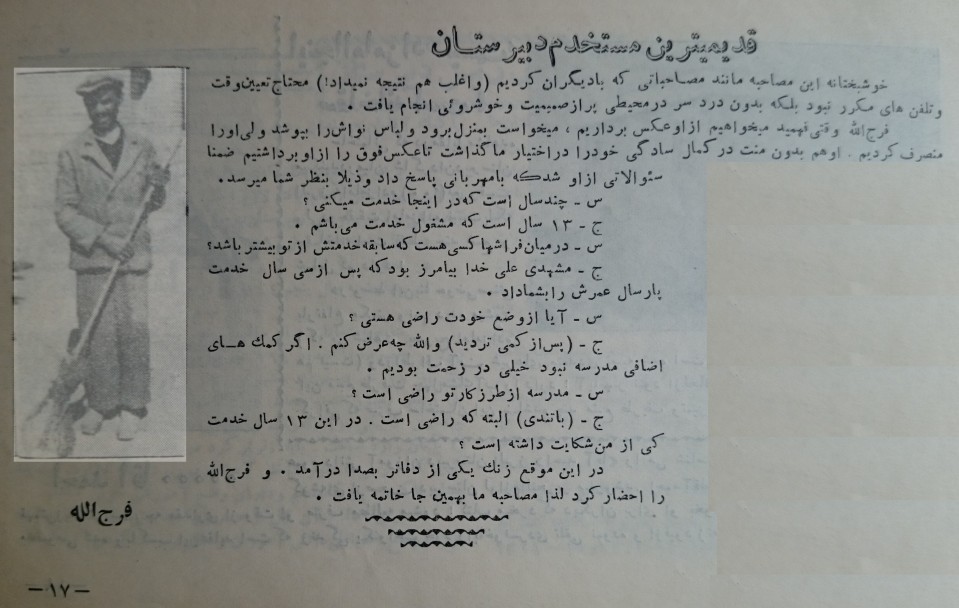 قدیمیترین مستخدم دبیرستان
خوشبختانه این مصاحبه مانند مصاحباتی که بادیگران کردیم (واغلب هم نتیجه نمیداد!) محتاج تعیین وقت
وتلفن های مکرر نبود بلکه بدون درد سر درمحیطی پر از صمیمیت وخوشروئی انجام یافت .
فرج‌الله وقتی فهمید میخواهیم ازاوعکس برداریم ، میخواست بمنزل برود ولباس نواش را بپوشد ولی اورا
منصرف کردیم . اوهم بدون منت درکمال سادگی خودرا دراختیار ماگذاشت تاعکس فوق را ازاوبرداشتیم ضمنا
سئوالاتی ازاو شدکه بامهربانی پاسخ داد وذیلا بنظر شما میرسد.
س ـ چندسال است که در اینجا خدمت میکنی ؟
ج ـ ۱۳ سال است که مشغول خدمت می‌باشم .
س ـ درمیان فراشهاکسی هست که سابقه خدمتش ازتوبیشتر باشد؟
ج ـ مشهدی علی خدا بیامرز بودکه پس ازسی سال خدمت
پارسال عمرش را بشماداد .
س ـ آیا ازوضع خودت راضی هستی ؟
ج ـ (پس‌از کمی تردید) والله چه‌عرض کنم . اگر کمك هـــای
اضافی مدرسه نبود خیلی در زحمت بودیم .
س ـ مدرسه ازطرزکارتو راضی است ؟
ج ـ (باتندی) البته که راضی است . در این ۱۳ سال خدمت
کی از من شکایت داشته است ؟
در این موقع زنك یکی از دفاتر بصدا درآمد . و فرج‌الله
را احضار کرد لذا مصاحبه ما بهمین جا خاتمه یافت .
فرج‌الله
ـ ۱۷ ـ